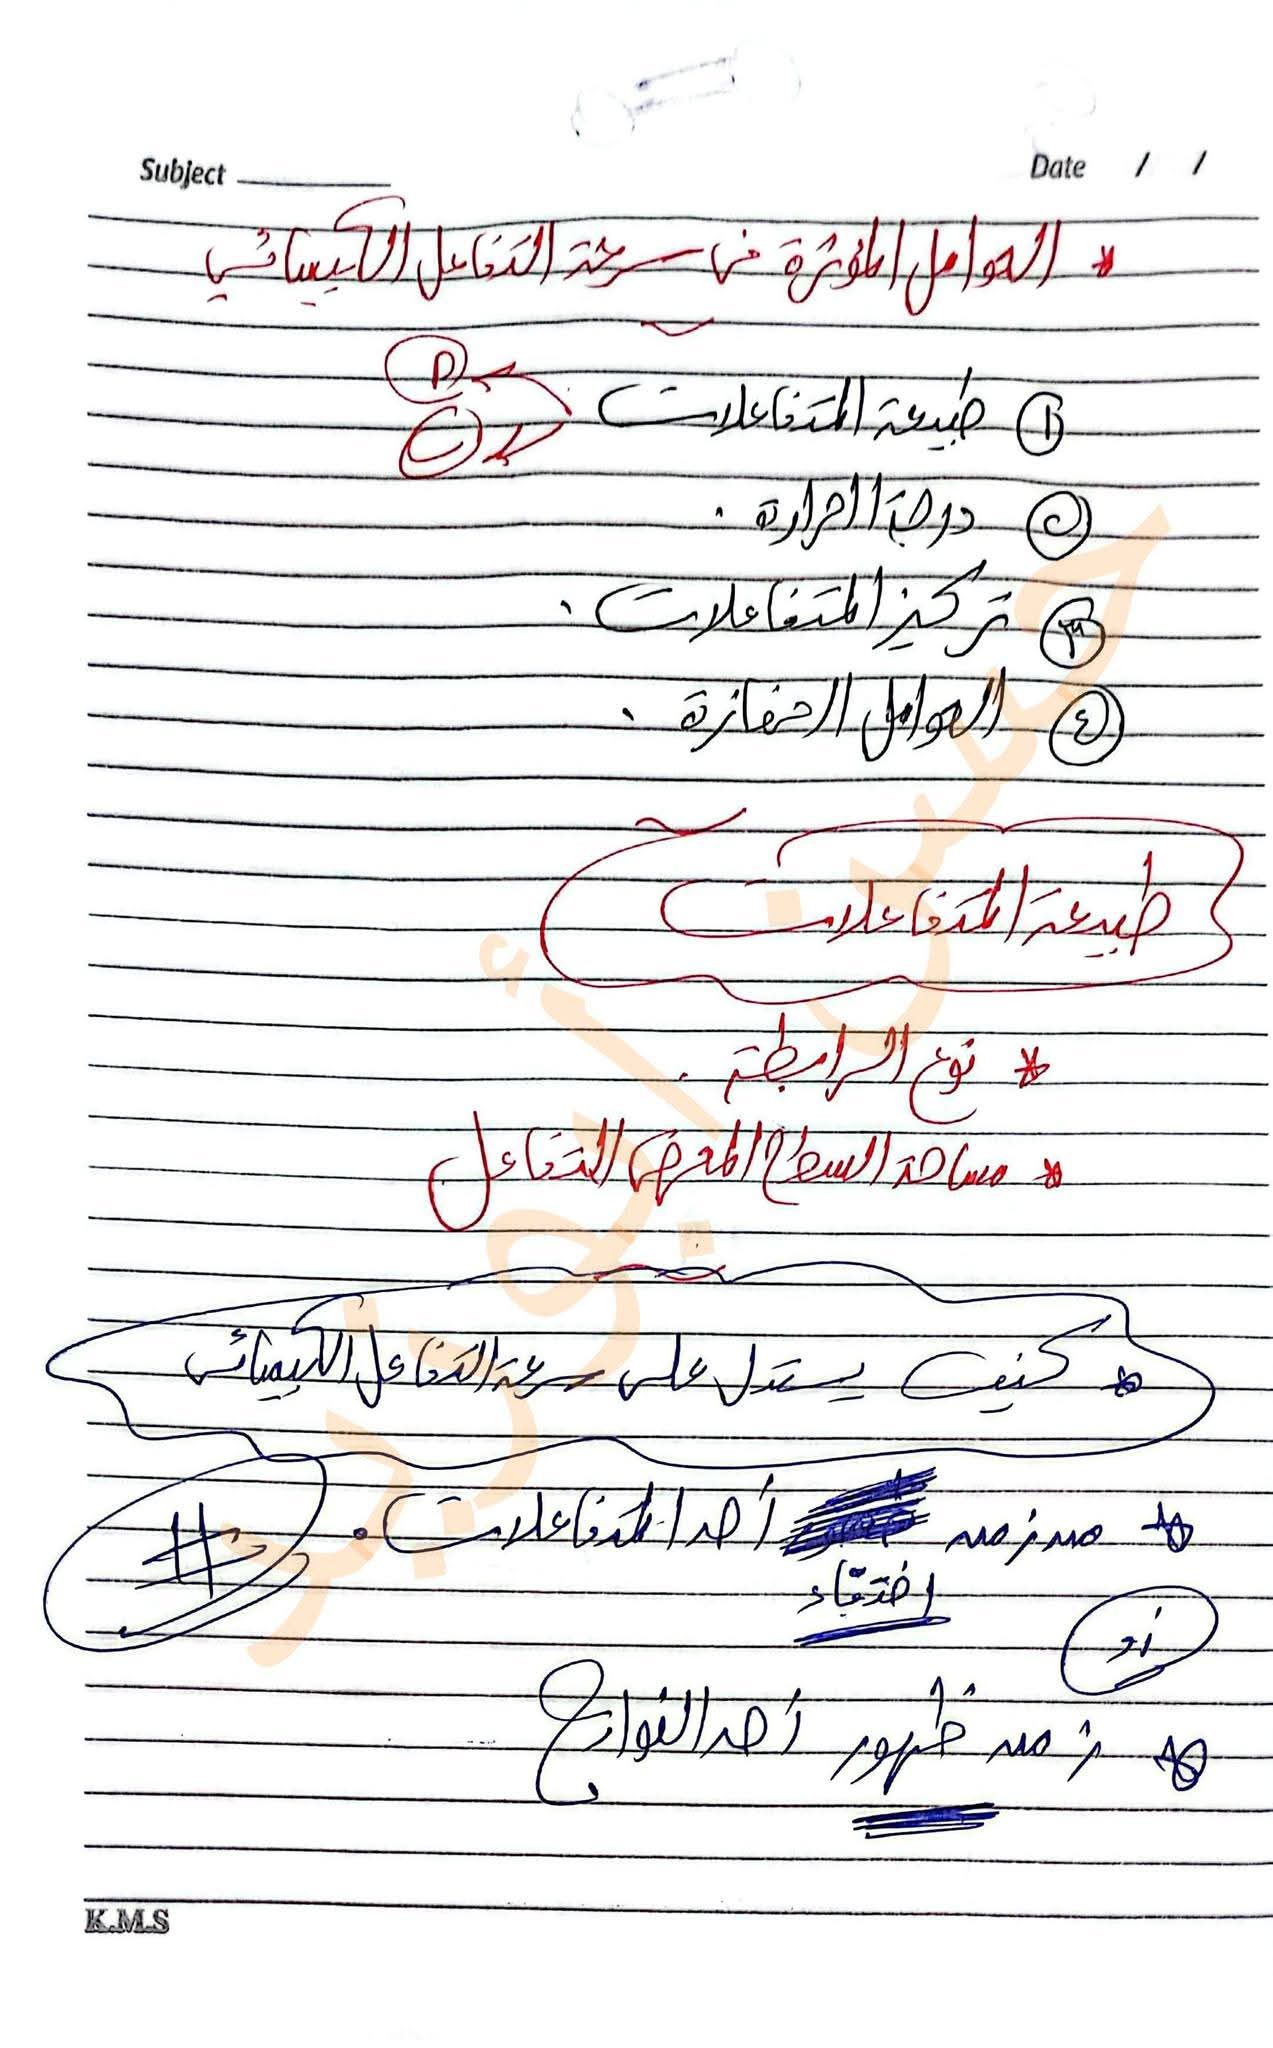 Subject
Date / /
* العوامل المؤثرة فى سرعة التفاعل الكيميائي
١ طبيعة المتفاعلات
١
٢
٢ درجة الحرارة .
٣ تركيز المتفاعلات .
٤ العوامل الحفازة .
طبيعة المتفاعلات
* نوع الرابطة .
* مساحة السطح المعرض للتفاعل
* كيف يستدل على سرعة التفاعل الكيميائى
* من زمن أحد المتفاعلات .
اختفاء
#
أو
* زمن ظهور أحد النواتج
K.M.S
حسن أبوزيد